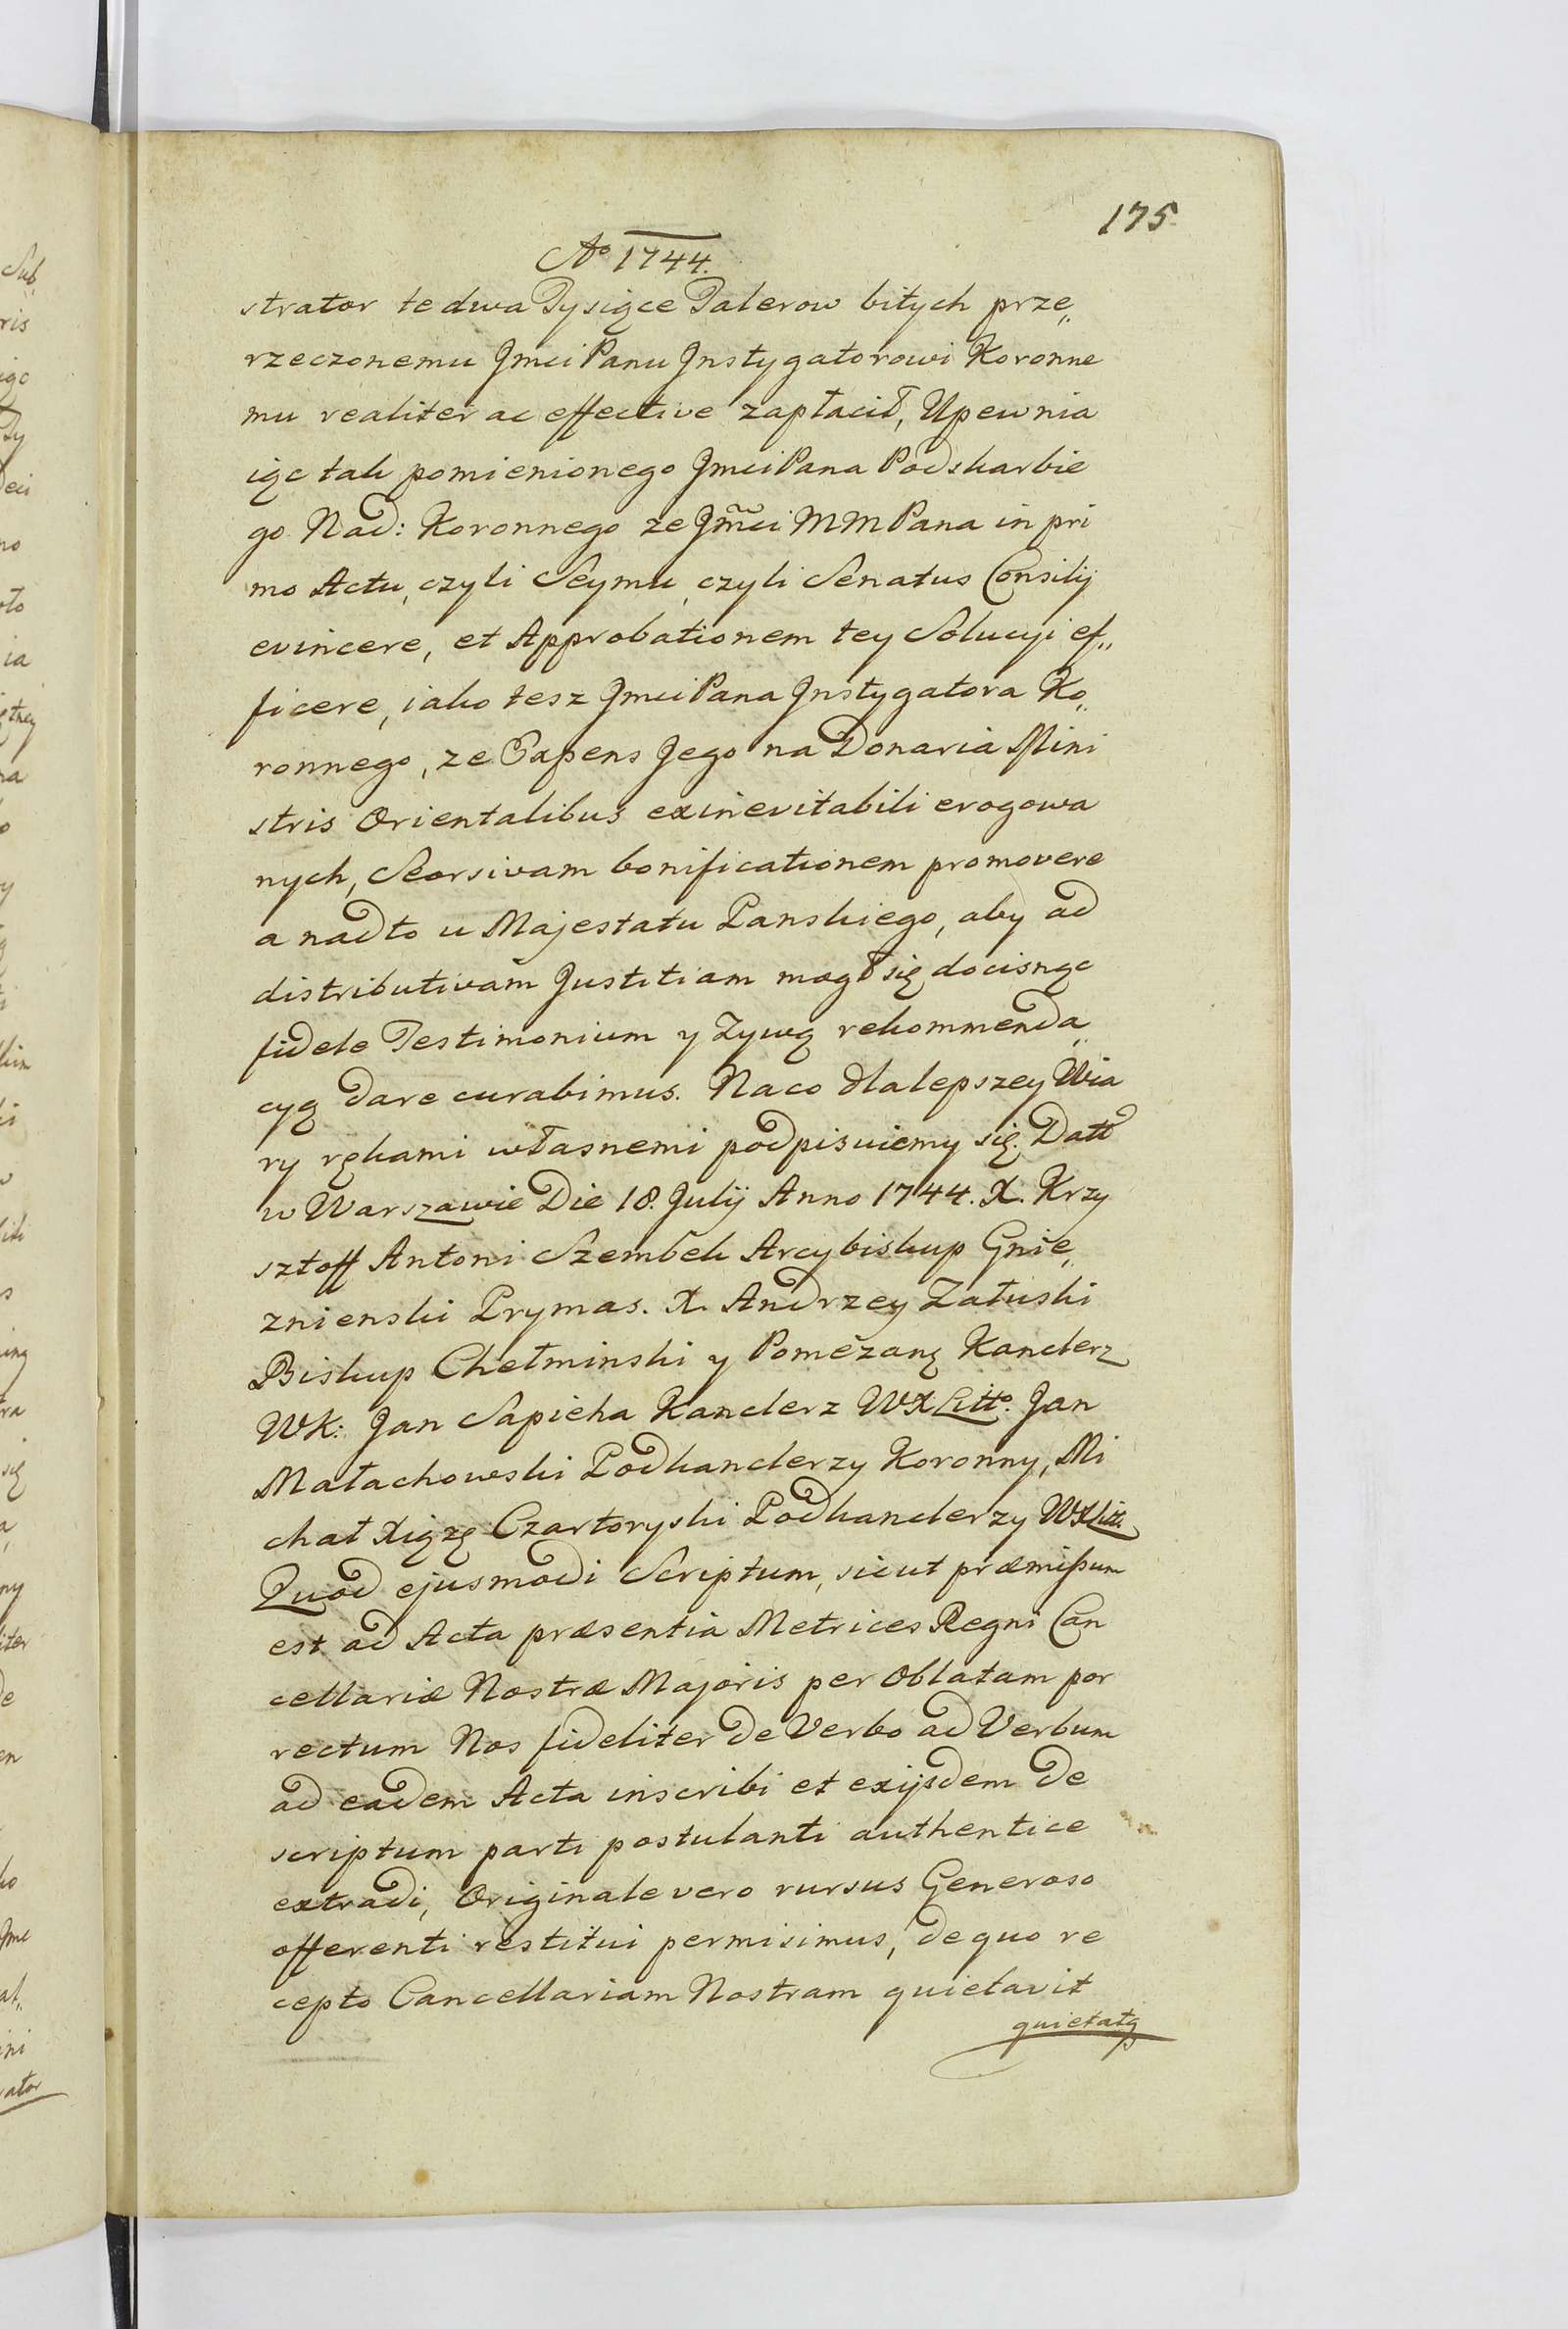 175
Ao 1744.
strator te dwa Tysiące Talerow bitych prze„
rzeczonemu Jmci Panu Jnstygatorowi Koronne
mu realiter ac effective zapłacił, Upewnia
iąc tak pomienionego Jmci Pana Podskarbie
go Nad: Koronnego ze Jmci MM Pana in pri
mo Actu, czyli Seymu, czyli Senatus Consilij
evincere, et Approbationem tey Solucyi ef„
ficere, iako tesz Jmci Pana Jnstygatora Ko„
ronnego, ze Expens Jego na Donaria Mini
stris Orientalibus exinevitabili erogowa
nych, Seorsivam bonificationem promovere
a nadto u Majestatu Panskiego, aby ad
distributivam Justitiam mogł się docisnąc
fidele Testimonium y Zywą rekommenda„
cyą dare curabimus. Na co dla lepszey Wia
ry rękami własnemi podpisuiemy się. Datt
w Warszawie Die 18. Julij Anno 1744. X. Krzy
sztoff Antoni Szembek Arcybiskup Gnie„
znienski Prymas. X. Andrzey Załuski
Biskup Chełminski y Pomezanę Kanclerz
WK: Jan Sapieha Kanclerz WXLitto. Jan
Małachowski Podkanclerzy Koronny, Mi
chał Xiązę Czartoryski Podkanclerzy WXLitt.
Quod ejusmodi Scriptum, sicut præmißum
est ad Acta præsentia Metrices Regni Can
cellariæ Nostræ Majoris per Oblatam por
rectum Nos fideliter de Verbo ad Verbum
ad eadem Acta inscribi et exijsdem de
scriptum parti postulanti authentice
extradi, Originale vero rursus Generoso
offerenti restitui permisimus, de quo re
cepto Cancellariam Nostram quietavit
quietatq